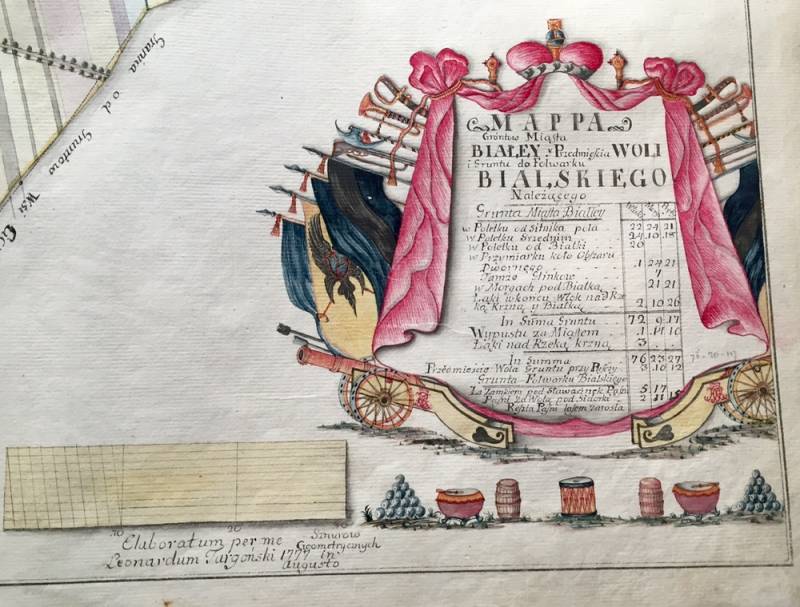 Granica od Gruntow Wsi
MAPPA
Grontow Miasta
BIAŁEY y Przedmieścia WOLI
i Gruntu do Folwarku
BIALSKIEGO
Należącego
Grunta Miasta Białłey
w Poletku od Sitnika pola 22 24 21
w Poletku Srzednim 24 10 18
w Poletku od Białki 20
w Przymiarku koło Obszaru
Dwornego 1 24 21
Tamże Glinkow 7
w Morgach pod Białką 21 21
Łąki w końcu Włok nad Rze
ką Krzną y Białką 2 10 26
In Suma Gruntu 72 9 17
Wypustu za Miastem 1 14 10
Łąki nad Rzeką krzną 3
In Summa 76 23 27
Przedmieścia Wola Gruntu przy 3 10 12
Grunta Folwarku Bialskiego
Za Zamkiem pod 5 17
za Wolą pod 2
Reszta lasem zarosła
10 20
Sznurow
Geometrycznych
Elaboratum per me
Leonardum Targoński 1777 in
Augusto